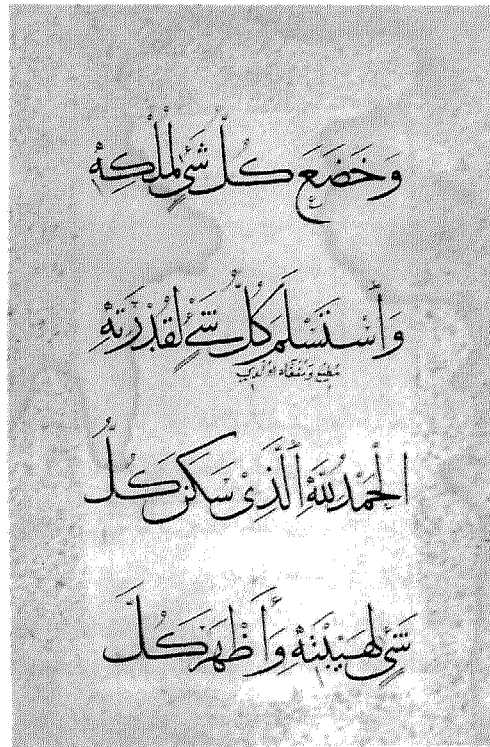 وَخَضَعَ كُلُّ شَیْ لِمُلْكِهٖ
وَاَسْتَسْلَمَ كُلُّ شَیْءٍ لِقُدْرَتِهٖ
اَلْحَمْدُ لِلّٰهِ اَلَّذِیْ سَكَنَ كُلُّ
شَیْءٍ لِهَيْبَتِهٖ وَاَظْهَرَ كُلَّ